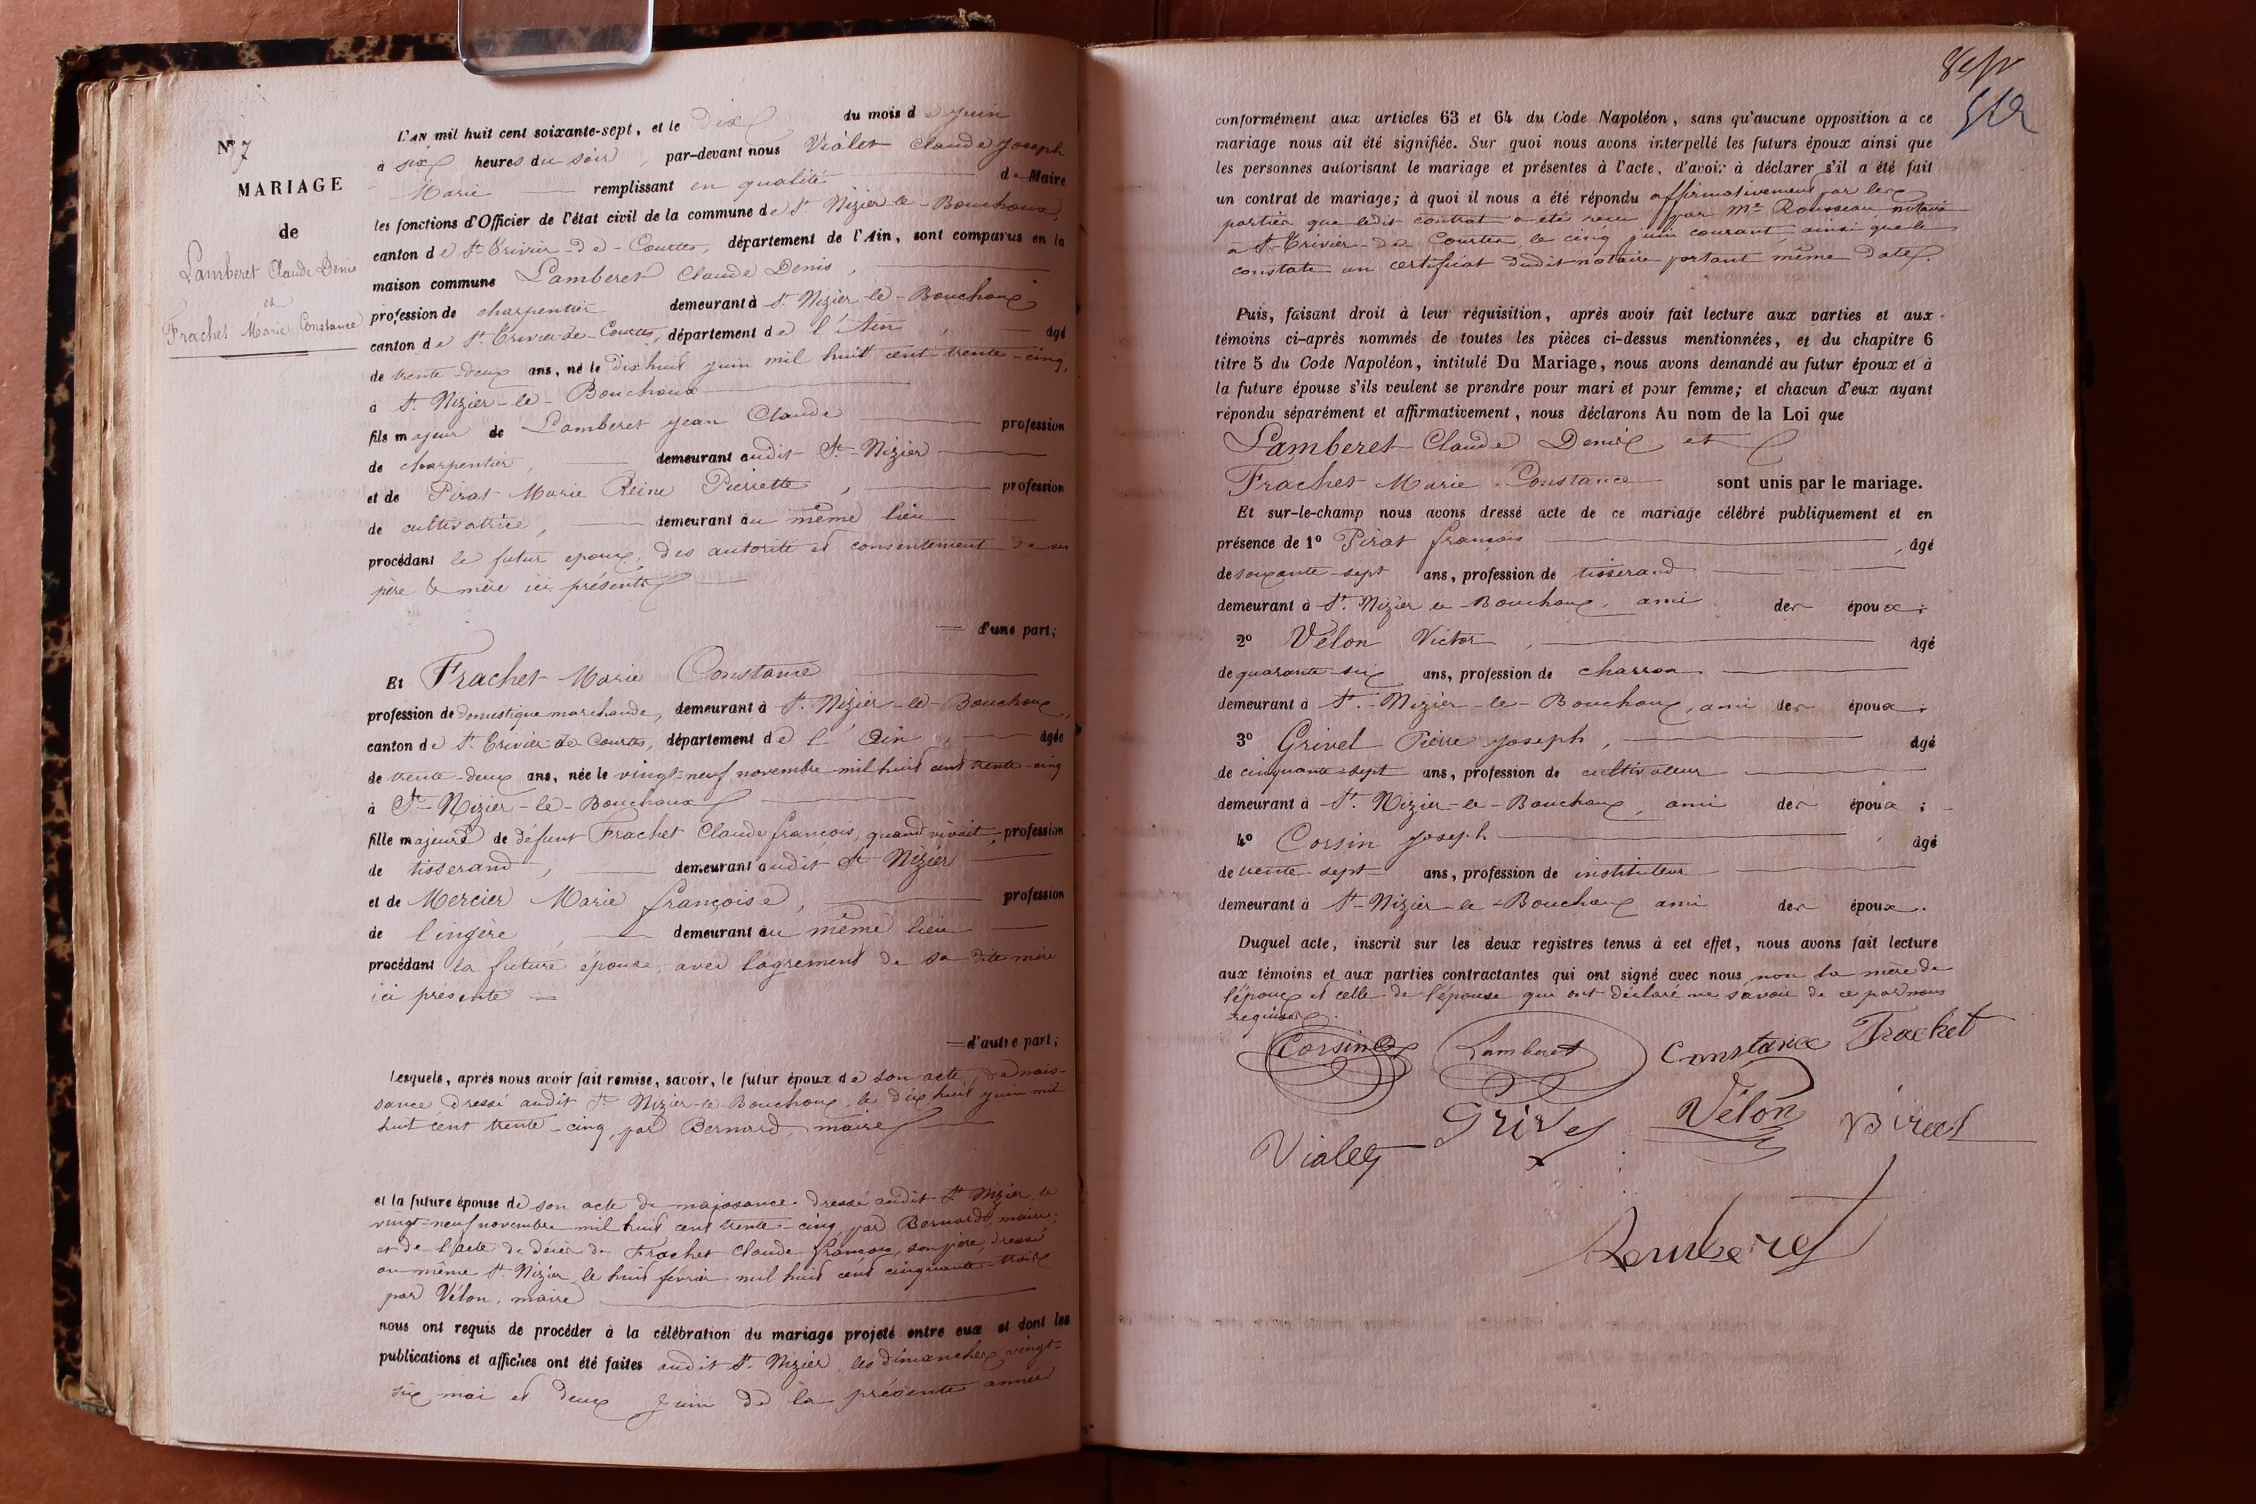 N° 7
MARIAGE
de
Lamberet Claude Denis
et
Frachet Marie Constance
L'AN mil huit cent soixante-sept, et le dix du mois de juin
à six heures du soir, par-devant nous Vialet Claude Joseph
Marie remplissant en qualité de Maire
les fonctions d'Officier de l'état civil de la commune de St Nizier-le-Bouchoux,
canton de St Trivier-de-Courtes, département de l'Ain, sont comparus en la
maison commune Lamberet Claude Denis,
profession de charpentier demeurant à St Nizier-le-Bouchoux
canton de St Trivier-de-Courtes, département de l'Ain, âgé
de trente-deux ans, né le dix huit juin mil huit cent trente-cinq,
à St Nizier-le-Bouchoux
fils majeur de Lamberet Jean Claude profession
de charpentier, demeurant audit St Nizier
et de Pirat Marie Reine Pierrette, profession
de cultivatrice, demeurant au même lieu
procédant le futur époux, des autorité et consentement de ses
père & mère ici présents
d'une part;
Et Frachet Marie Constance
profession de domestique marchande, demeurant à St Nizier-le-Bouchoux,
canton de St Trivier-de-Courtes, département de l'Ain, âgée
de trente-deux ans, née le vingt-neuf novembre mil huit cent trente-cinq
à St Nizier-le-Bouchoux
fille majeure de défunt Frachet Claude françois, quand vivait, profession
de tisserand, demeurant audit St Nizier
et de Mercier Marie françoise, profession
de lingère, demeurant au même lieu
procédant la future épouse, avec l'agrément de sa dite mère
ici présente
d'autre part;
Lesquels, après nous avoir fait remise, savoir, le futur époux de son acte de nais-
sance dressé audit St Nizier-le-Bouchoux, le dix huit juin mil
huit cent trente-cinq, par Bernard, maire
et la future épouse de son acte de naissance dressé audit St Nizier, le
vingt-neuf novembre mil huit cent trente-cinq par Bernard, maire;
et de l'acte de décès de Frachet Claude françois, son père, dressé
au même St Nizier, le huit février mil huit cent cinquante-trois
par Vélon, maire
nous ont requis de procéder à la célébration du mariage projeté entre eux et dont les
publications et affiches ont été faites audit St Nizier, les dimanches vingt-
six mai et deux Juin de la présente année
conformément aux articles 63 et 64 du Code Napoléon, sans qu'aucune opposition à ce
mariage nous ait été signifiée. Sur quoi nous avons interpellé les futurs époux ainsi que
les personnes autorisant le mariage et présentes à l'acte, d'avoir à déclarer s'il a été fait
un contrat de mariage; à quoi il nous a été répondu affirmativement par les
parties que ledit contrat a été reçu par Me Rousseau notaire
à St Trivier-de-Courtes le cinq juin courant, ainsi que le
constate un certificat dudit notaire portant même date.
Puis, faisant droit à leur réquisition, après avoir fait lecture aux parties et aux
témoins ci-après nommés de toutes les pièces ci-dessus mentionnées, et du chapitre 6
titre 5 du Code Napoléon, intitulé Du Mariage, nous avons demandé au futur époux et à
la future épouse s'ils veulent se prendre pour mari et pour femme; et chacun d'eux ayant
répondu séparément et affirmativement, nous déclarons Au nom de la Loi que
Lamberet Claude Denis et
Frachet Marie Constance sont unis par le mariage.
Et sur-le-champ nous avons dressé acte de ce mariage célébré publiquement et en
présence de 1° Pirat françois, âgé
de soixante-sept ans, profession de tisserand
demeurant à St Nizier-le-Bouchoux, ami des époux;
2° Vélon Victor, âgé
de quarante-six ans, profession de charron
demeurant à St Nizier-le-Bouchoux, ami des époux;
3° Grivel Pierre Joseph, âgé
de cinquante-sept ans, profession de cultivateur
demeurant à St Nizier-le-Bouchoux, ami des époux;
4° Corsin Joseph, âgé
de trente-sept ans, profession de instituteur
demeurant à St Nizier-le-Bouchoux ami des époux.
Duquel acte, inscrit sur les deux registres tenus à cet effet, nous avons fait lecture
aux témoins et aux parties contractantes qui ont signé avec nous, non la mère de
l'époux et celle de l'épouse qui ont déclaré ne savoir de ce par nous
requises.
Corsin Lamberet Constance Frachet
Vialet Grivel Vélon Pirat
Lamberet